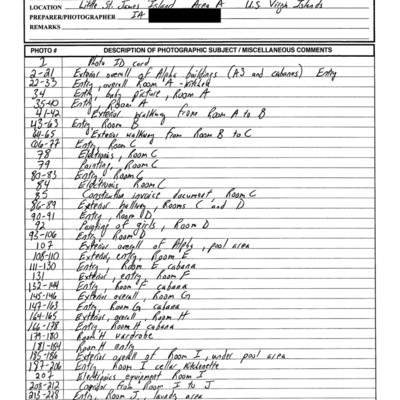 LOCATION Little St. James Island Area A U.S. Virgin Islands
PREPARER/PHOTOGRAPHER IA
REMARKS
PHOTO # DESCRIPTION OF PHOTOGRAPHIC SUBJECT / MISCELLANEOUS COMMENTS
1 Photo ID card
2-21 Exterior overall of Alpha buildings (A3 and cabanas) Entry
22-33 Entry, overall Room A - kitchen
34 Entry, baby picture, Room A
35-40 Entry, Room A
41-42 Exterior walkway from Room A to B
43-63 Entry Room B
64-65 Exterior walkway from Room B to C
66-77 Entry, Room C
78 Electronics, Room C
79 Painting, Room C
80-83 Entry, Room C
84 Electronics, Room C
85 Construction invoice document, Room C
86-89 Exterior hallway, Rooms C and D
90-91 Entry, Room D
92 Painting of girls, Room D
93-106 Entry, Room D
107 Exterior overall of Alpha, pool area
108-110 Exterior, entry, Room E
111-130 Entry, Room E cabana
131 Exterior, entry, Room F
132-144 Entry, Room F cabana
145-146 Exterior overall, Room G
147-163 Entry, Room G cabana
164-165 Exterior, overall, Room H
166-178 Entry, Room H cabana
179-180 Room H wardrobe
181-184 Room H entry
185-186 Exterior overall of Room I, under pool area
187-206 Entry, Room I cellar, kitchenette
207 Electronics equipment Room I
208-212 Corridor from Room I to J
213-228 Entry, Room J, laundry area